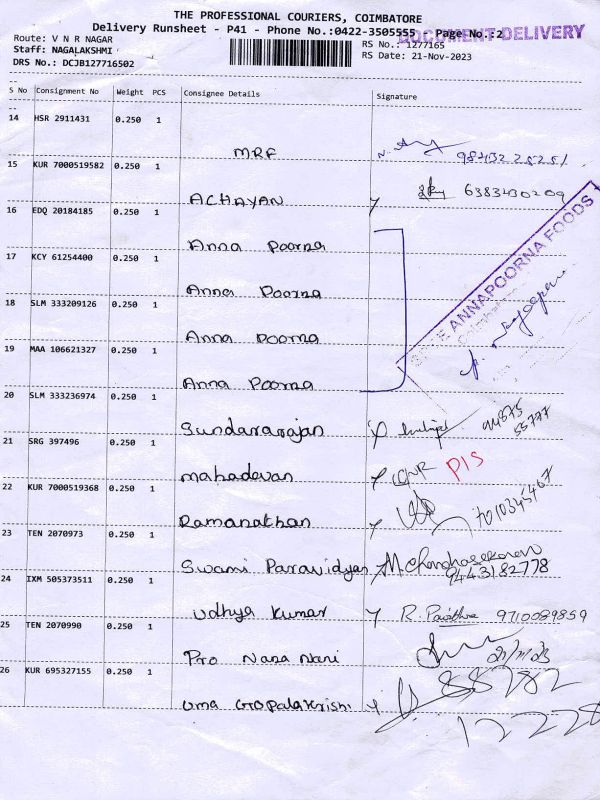 THE PROFESSIONAL COURIERS, COIMBATORE
Delivery Runsheet - P41 - Phone No.:0422-3505555 Page No.:2
DOCUMENT DELIVERY
Route: V N R NAGAR
Staff: NAGALAKSHMI
DRS No.: DCJB127716502
RS No.: 1277165
RS Date: 21-Nov-2023
S No Consignment No Weight PCS Consignee Details Signature
14 HSR 2911431 0.250 1
MRF
15 KUR 7000519582 0.250 1
ACHAYAN 6383430209
16 EDQ 20184185 0.250 1
Anna Poorna
17 KCY 61254400 0.250 1
Anna Poorna
18 SLM 333209126 0.250 1
Anna Poorna
19 MAA 106621327 0.250 1
Anna Poorna
SHREE ANNAPOORNA FOODS
20 SLM 333236974 0.250 1
Sundararajan 94875
55777
21 SRG 397496 0.250 1
Mahadevan PIS
22 KUR 7000519368 0.250 1
Ramanathan
23 TEN 2070973 0.250 1
Swami Paravidyan M. Chandrasekaran
9443182778
24 IXM 505373511 0.250 1
Udhya Kumar R. Pavithra 9710089859
25 TEN 2070990 0.250 1
Pro Nana Nani 21/11/23
26 KUR 695327155 0.250 1
Uma Gopalakrishi 88782
12228